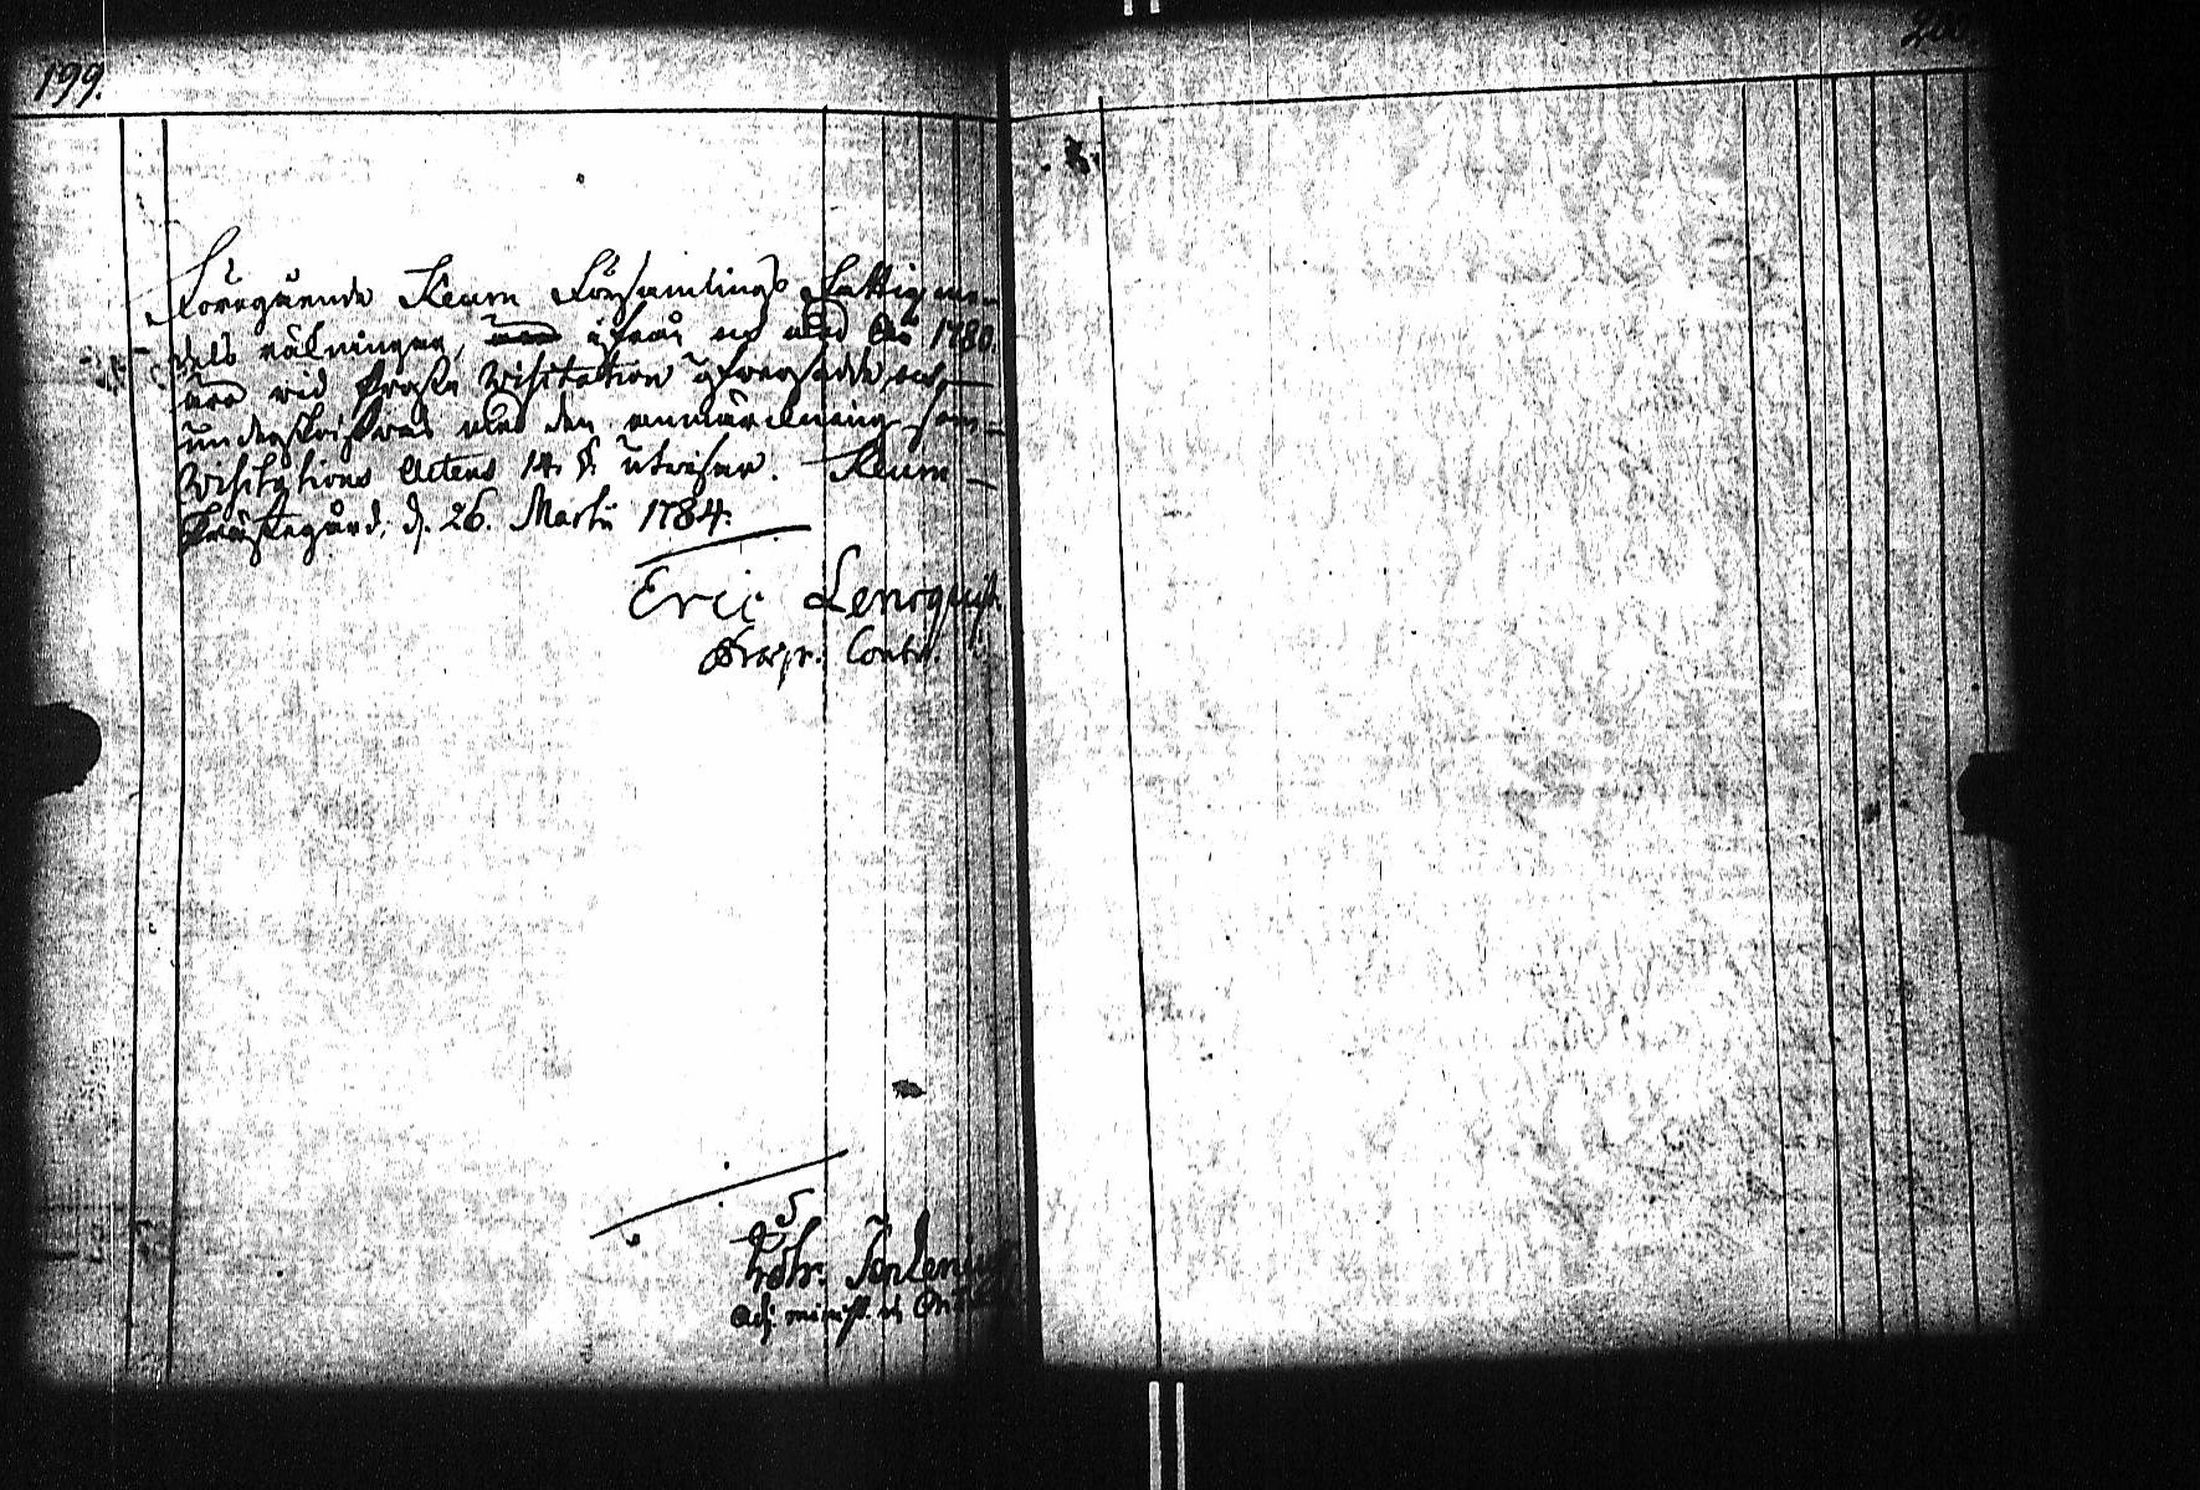 199.
200
Föregående Keuru Församlings Fattigme-
dels räkningar, ifrån och med år 1780.
äro vid Prosts Visitation öfversedde och
underskrifvas med den anmärckning som
Visitations Actens 14. §. utvisar. Keuru
Prästegård, d. 26. Martii 1784.
Eric Lencqvist
Præp. Contr.
Adj. minist.